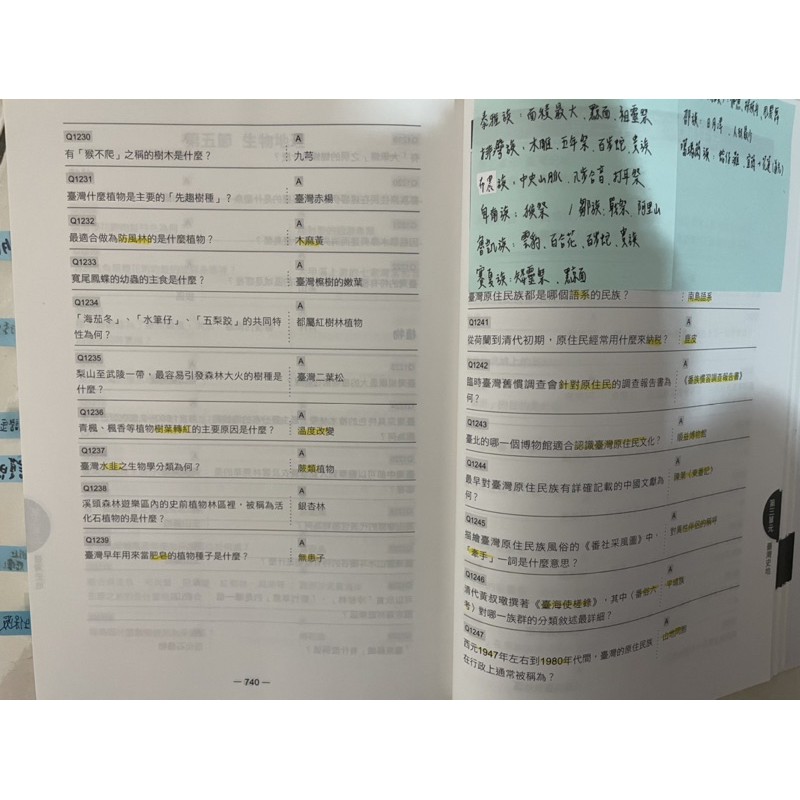 Q1230 A
有「猴不爬」之稱的樹木是什麼？ 九芎
Q1231 A
臺灣什麼植物是主要的「先趨樹種」？ 臺灣赤楊
Q1232 A
最適合做為防風林的是什麼植物？ 木麻黃
Q1233 A
寬尾鳳蝶的幼蟲的主食是什麼？ 臺灣檫樹的嫩葉
Q1234 A
「海茄冬」、「水筆仔」、「五梨跤」的共同特 都屬紅樹林植物
性為何？
Q1235 A
梨山至武陵一帶，最容易引發森林大火的樹種是 臺灣二葉松
什麼？
Q1236 A
青楓、楓香等植物樹葉轉紅的主要原因是什麼？ 溫度改變
Q1237 A
臺灣水韭之生物學分類為何？ 蕨類植物
Q1238 A
溪頭森林遊樂區內的史前植物林區裡，被稱為活 銀杏林
化石植物的是什麼？
Q1239 A
臺灣早年用來當肥皂的植物種子是什麼？ 無患子
— 740 —
泰雅族：面積最大、黥面、祖靈祭
排灣族：木雕、五年祭、百步蛇、貴族
布農族：中央山脈、八步合音、打耳祭
卑南族：猴祭 / 鄒族、戰祭、阿里山
魯凱族：雲豹、百合花、百步蛇、貴族
賽夏族：矮靈祭、黥面
邵族：日月潭、人口最少
臺灣原住民族都是哪個語系的民族？ 南島語系
Q1241 A
從荷蘭到清代初期，原住民經常用什麼來納稅？ 鹿皮
Q1242 A
臨時臺灣舊慣調查會針對原住民的調查報告書為 《番族慣習調查報告書》
何？
Q1243 A
臺北的哪一個博物館適合認識臺灣原住民文化？ 順益博物館
Q1244 A
最早對臺灣原住民族有詳確記載的中國文獻為 陳第《東番記》
何？
Q1245 A
描繪臺灣原住民族風俗的《番社采風圖》中、 對異性伴侶的稱呼
「牽手」一詞是什麼意思？
Q1246 A
清代黃叔璥撰著《臺海使槎錄》，其中〈番俗六 平埔族
考〉對哪一族群的分類敘述最詳細？
Q1247 A
西元1947年左右到1980年代間，臺灣的原住民族 山地同胞
在行政上通常被稱為？
第三單元 臺灣史地